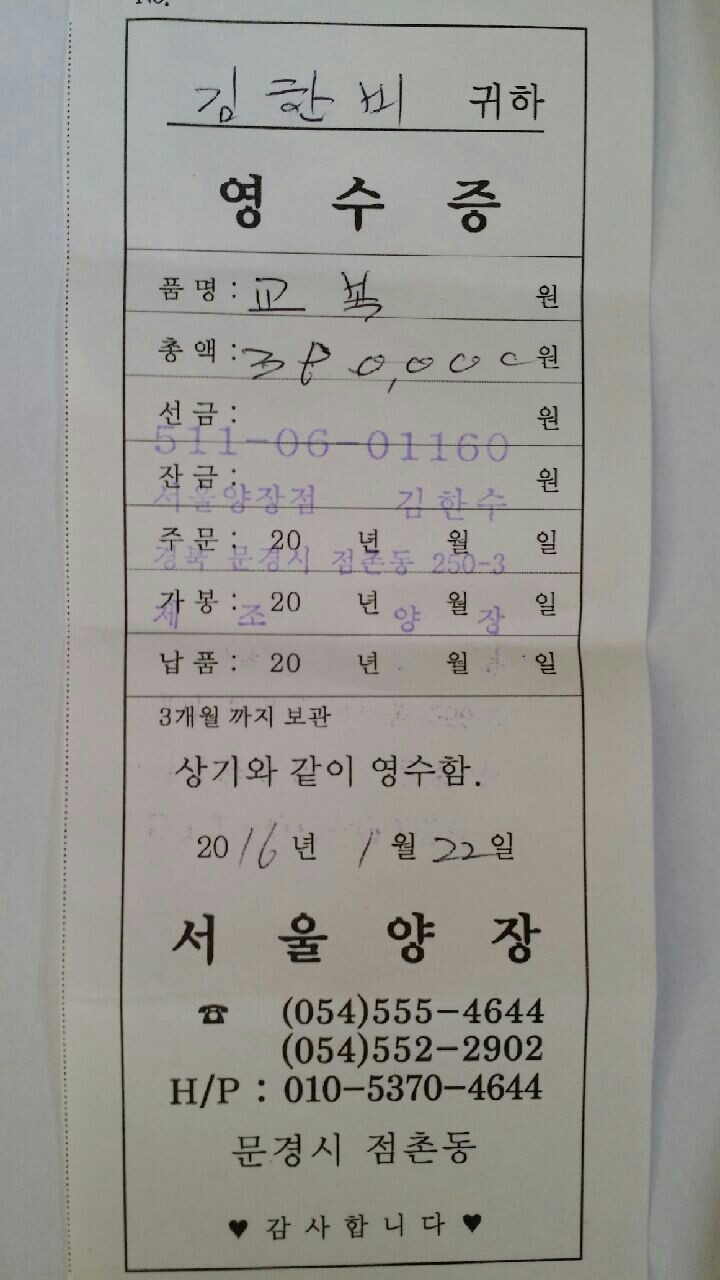 No.
김한비 귀하
영 수 증
품 명 : 교복 원
총 액 : 380,000 원
선 금 : 원
511-06-01160
잔 금 : 원
서울양장점 김한수
주 문 : 20 년 월 일
경북 문경시 점촌동 250-3
가 봉 : 20 년 월 일
제 조 양 장
납 품 : 20 년 월 일
3개월 까지 보관
상기와 같이 영수함.
2016년 1월 22일
서 울 양 장
☎ (054)555-4644
(054)552-2902
H/P : 010-5370-4644
문경시 점촌동
♥ 감 사 합 니 다 ♥